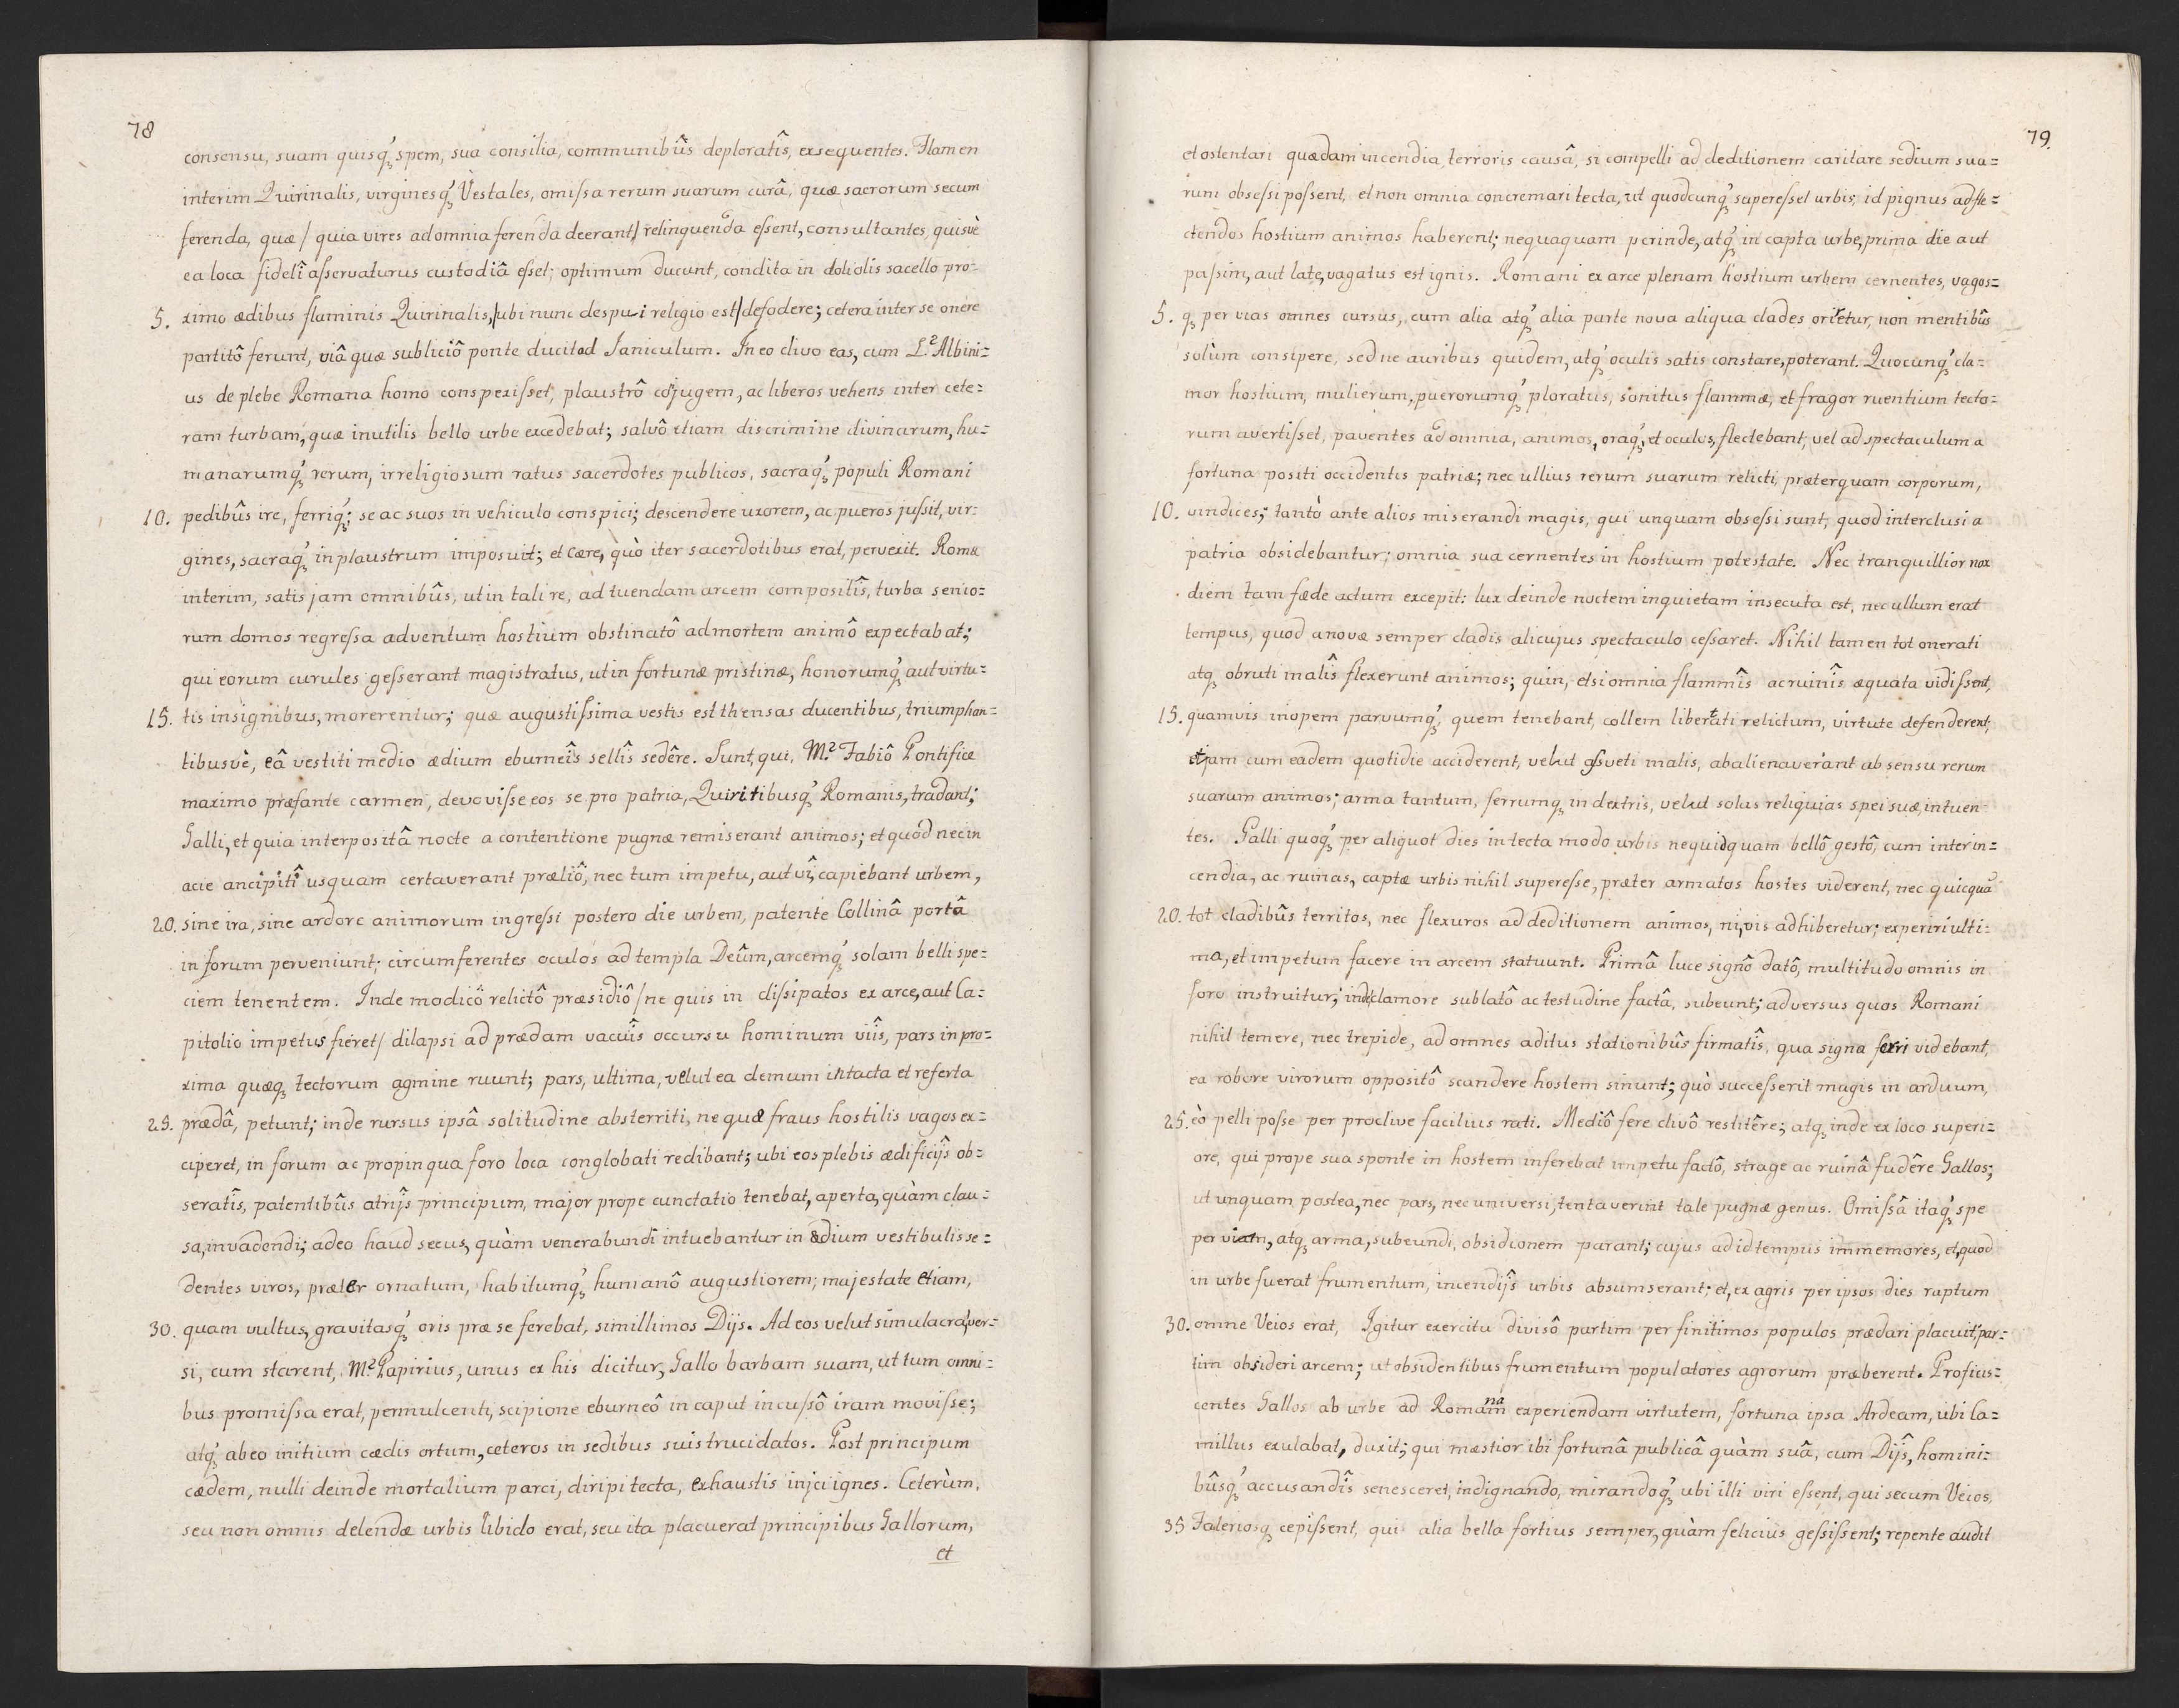 78
consensu, suam quisq́ꝫ spem, sua consilia, communibûs deploratîs, exsequentes. Flamen
interim Quirinalis, virginesq́ꝫ Vestales, omiſsa rerum suarum curâ, quæ sacrorum secum
ferenda, quæ / quia vires ad omnia ferenda deerant / relinquenda eſsent, consultantes, quisvè
ea loca fidelî aſservaturus custodiâ eſset; optimum ducunt, condita in doliolis sacello pro=
5. ximo ædibus flaminis Quirinalis, / ubi nunc despui religio est / defodere; cetera inter se onere
partitô ferunt, viâ quæ subliciô ponte ducit ad Janiculum. In eo clivo eas, cum L.² Albini=
us de plebe Romana homo conspexiſset, plaustrô cojugem, ac liberos vehens inter cete=
ram turbam, quæ inutilis bello urbe excedebat; salvô etiam discrimine divinarum, hu=
manarumq́ꝫ rerum, irreligiosum ratus sacerdotes publicos, sacraq́ꝫ populi Romani
10. pedibûs ire, ferriq́ꝫ; se ac suos in vehiculo conspici; descendere uxorem, ac pueros juſsit, vir=
gines, sacraq́ꝫ in plaustrum imposuit; et Cære, quò iter sacerdotibus erat, pervexit. Romæ
interim, satis jam omnibûs, ut in tali re, ad tuendam arcem compositîs, turba senio=
rum domos regreſsa adventum hostium obstinatô ad mortem animô expectabat;
qui eorum curules geſserant magistratus, ut in fortunæ pristinæ, honorumq́ꝫ aut virtu=
15. tis insignibus, morerentur; quæ augustiſsima vestis est thensas ducentibus, triumphan=
tibusvè, eâ vestiti medio ædium eburneîs sellîs sedêre. Sunt, qui, M.² Fabiô Pontifice
maximo præfante carmen, devoviſse eos se pro patria, Quiritibusq́ꝫ Romanis, tradant;
Galli, et quia interpositâ nocte a contentione pugnæ remiserant animos; et quod nec in
acie ancipitî usquam certaverant præliô, nec tum impetu, aut vî, capiebant urbem,
20. sine ira, sine ardore animorum ingreſsi postero die urbem, patente Collinâ portâ
in forum perveniunt; circumferentes oculos ad templa Deûm, arcemq́ꝫ solam belli spe=
ciem tenentem. Inde modicô relictô præsidiô / ne quis in diſsipatos ex arce, aut Ca=
pitolio impetus fieret / dilapsi ad prædam vacuîs occursu hominum viîs, pars in pro=
xima quæqꝫ tectorum agmine ruunt; pars, ultima, velut ea demum intacta et referta
25. prædâ, petunt; inde rursus ipsâ solitudine absterriti, ne quæ fraus hostilis vagos ex=
ciperet, in forum ac propinqua foro loca conglobati redibant; ubi eos plebis ædificijs ob=
seratîs, patentibûs atrijs principum, major prope cunctatio tenebat, aperta, quàm clau=
sa, invadendi; adeo haud secus, quàm venerabundi intuebantur in ædium vestibulis se=
dentes viros, præter ornatum, habitumq́ꝫ humanô augustiorem; majestate etiam,
30. quam vultus, gravitasq́ꝫ oris præ se ferebat, simillimos Dijs. Ad eos velut simulacra, ver=
si, cum starent, M.² Papirius, unus ex his dicitur, Gallo barbam suam, ut tum omni=
bus promiſsa erat, permulcenti, scipione eburneô in caput incuſsô iram moviſse;
atq́ꝫ ab eo initium cædis ortum, ceteros in sedibus suis trucidatos. Post principum
cædem, nulli deinde mortalium parci, diripi tecta, exhaustis injci ignes. Ceterùm,
seu non omnis delendæ urbis libido erat, seu ita placuerat principibus Gallorum,
et
79.
et ostentari quædam incendia, terroris causâ, si compelli ad deditionem caritate sedium sua=
rum obseſsi poſsent, et non omnia concremari tecta, ut quodcunq́ꝫ supereſset urbis, id pignus ad fle=
ctendos hostium animos haberent; nequaquam perinde, atq́ꝫ in capta urbe, prima die aut
paſsim, aut late, vagatus est ignis. Romani ex arce plenam hostium urbem cernentes, vagos=
5. qꝫ per vias omnes cursus, cum alia atq́ꝫ alia parte nova aliqua clades oriretur, non mentibûs
solùm consipere, sed ne auribus quidem, atq́ꝫ oculis satis constare, poterant. Quocunq́ꝫ cla=
mor hostium, mulierum, puerorumq́ꝫ ploratus, sonitus flammæ, et fragor ruentium tecto=
rum avertiſset, paventes ad omnia, animos, oraq́ꝫ, et oculos, flectebant, vel ad spectaculum a
fortuna positi occidentis patriæ; nec ullius rerum suarum relicti, præterquam corporum,
10. vindices; tantò ante alios miserandi magis, qui unquam obseſsi sunt, quod interclusi a
patria obsidebantur; omnia sua cernentes in hostium potestate. Nec tranquillior nox
diem tam fæde actum excepit: lux deinde noctem inquietam insecuta est, nec ullum erat
tempus, quod a novæ semper cladis alicujus spectaculo ceſsaret. Nihil tamen tot onerati
atqꝫ obruti malîs flexerunt animos; quin, etsi omnia flammîs ac ruinîs æquata vidiſsent,
15. quamvis inopem parvumq́ꝫ, quem tenebant, collem libertati relictum, virtute defenderent;
et jam cum eadem quotidie acciderent, velut aſsveti malis, abalienaverant ab sensu rerum
suarum animos; arma tantum, ferrumqꝫ in dextris, velut solas reliquias spei suæ, intuen=
tes. Galli quoq́ꝫ per aliquot dies in tecta modo urbis nequidquam bellô gestô, cum inter in=
cendia, ac ruinas, captæ urbis nihil supereſse, præter armatos hostes viderent, nec quicquã
20. tot cladibûs territos, nec flexuros ad deditionem animos, ni, vis adhiberetur; experiri ulti=
ma, et impetum facere in arcem statuunt. Primâ luce signô datô, multitudo omnis in
foro instruitur; inde clamore sublatô ac testudine factâ, subeunt; adversus quos Romani
nihil temere, nec trepide, ad omnes aditus stationibûs firmatîs, qua signa ferri videbant,
ea robore virorum oppositô scandere hostem sinunt; quò succeſserit magis in arduum,
25. eò pelli poſse per proclive facilius rati. Mediô fere clivô restitêre; atqꝫ inde ex loco superi=
ore, qui prope sua sponte in hostem inferebat impetu factô, strage ac ruinâ fudêre Gallos;
ut unquam postea, nec pars, nec universi, tentaverint tale pugnæ genus. Omiſsâ itaq́ꝫ spe
per viam, atqꝫ arma, subeundi, obsidionem parant; cujus ad id tempus immemores, et, quod
in urbe fuerat frumentum, incendijs urbis absumserant; et, ex agris per ipsos dies raptum
30. omne Veios erat, Igitur exercitu divisô partim per finitimos populos prædari placuit, par=
tim obsideri arcem; ut obsidentibus frumentum populatores agrorum præberent. Proficis=
centes Gallos ab urbe ad Romanã experiendam virtutem, fortuna ipsa Ardeam, ubi Ca=
millus exulabat, duxit; qui mæstior ibi fortunâ publicâ quàm suâ, cum Dijs, homini=
bûsq́ꝫ accusandîs senesceret, indignando, mirandoq́ꝫ ubi illi viri eſsent, qui secum Veios,
35 Faleriosqꝫ cepiſsent, qui alia bella fortius semper, quàm felicius geſsiſsent; repente audit